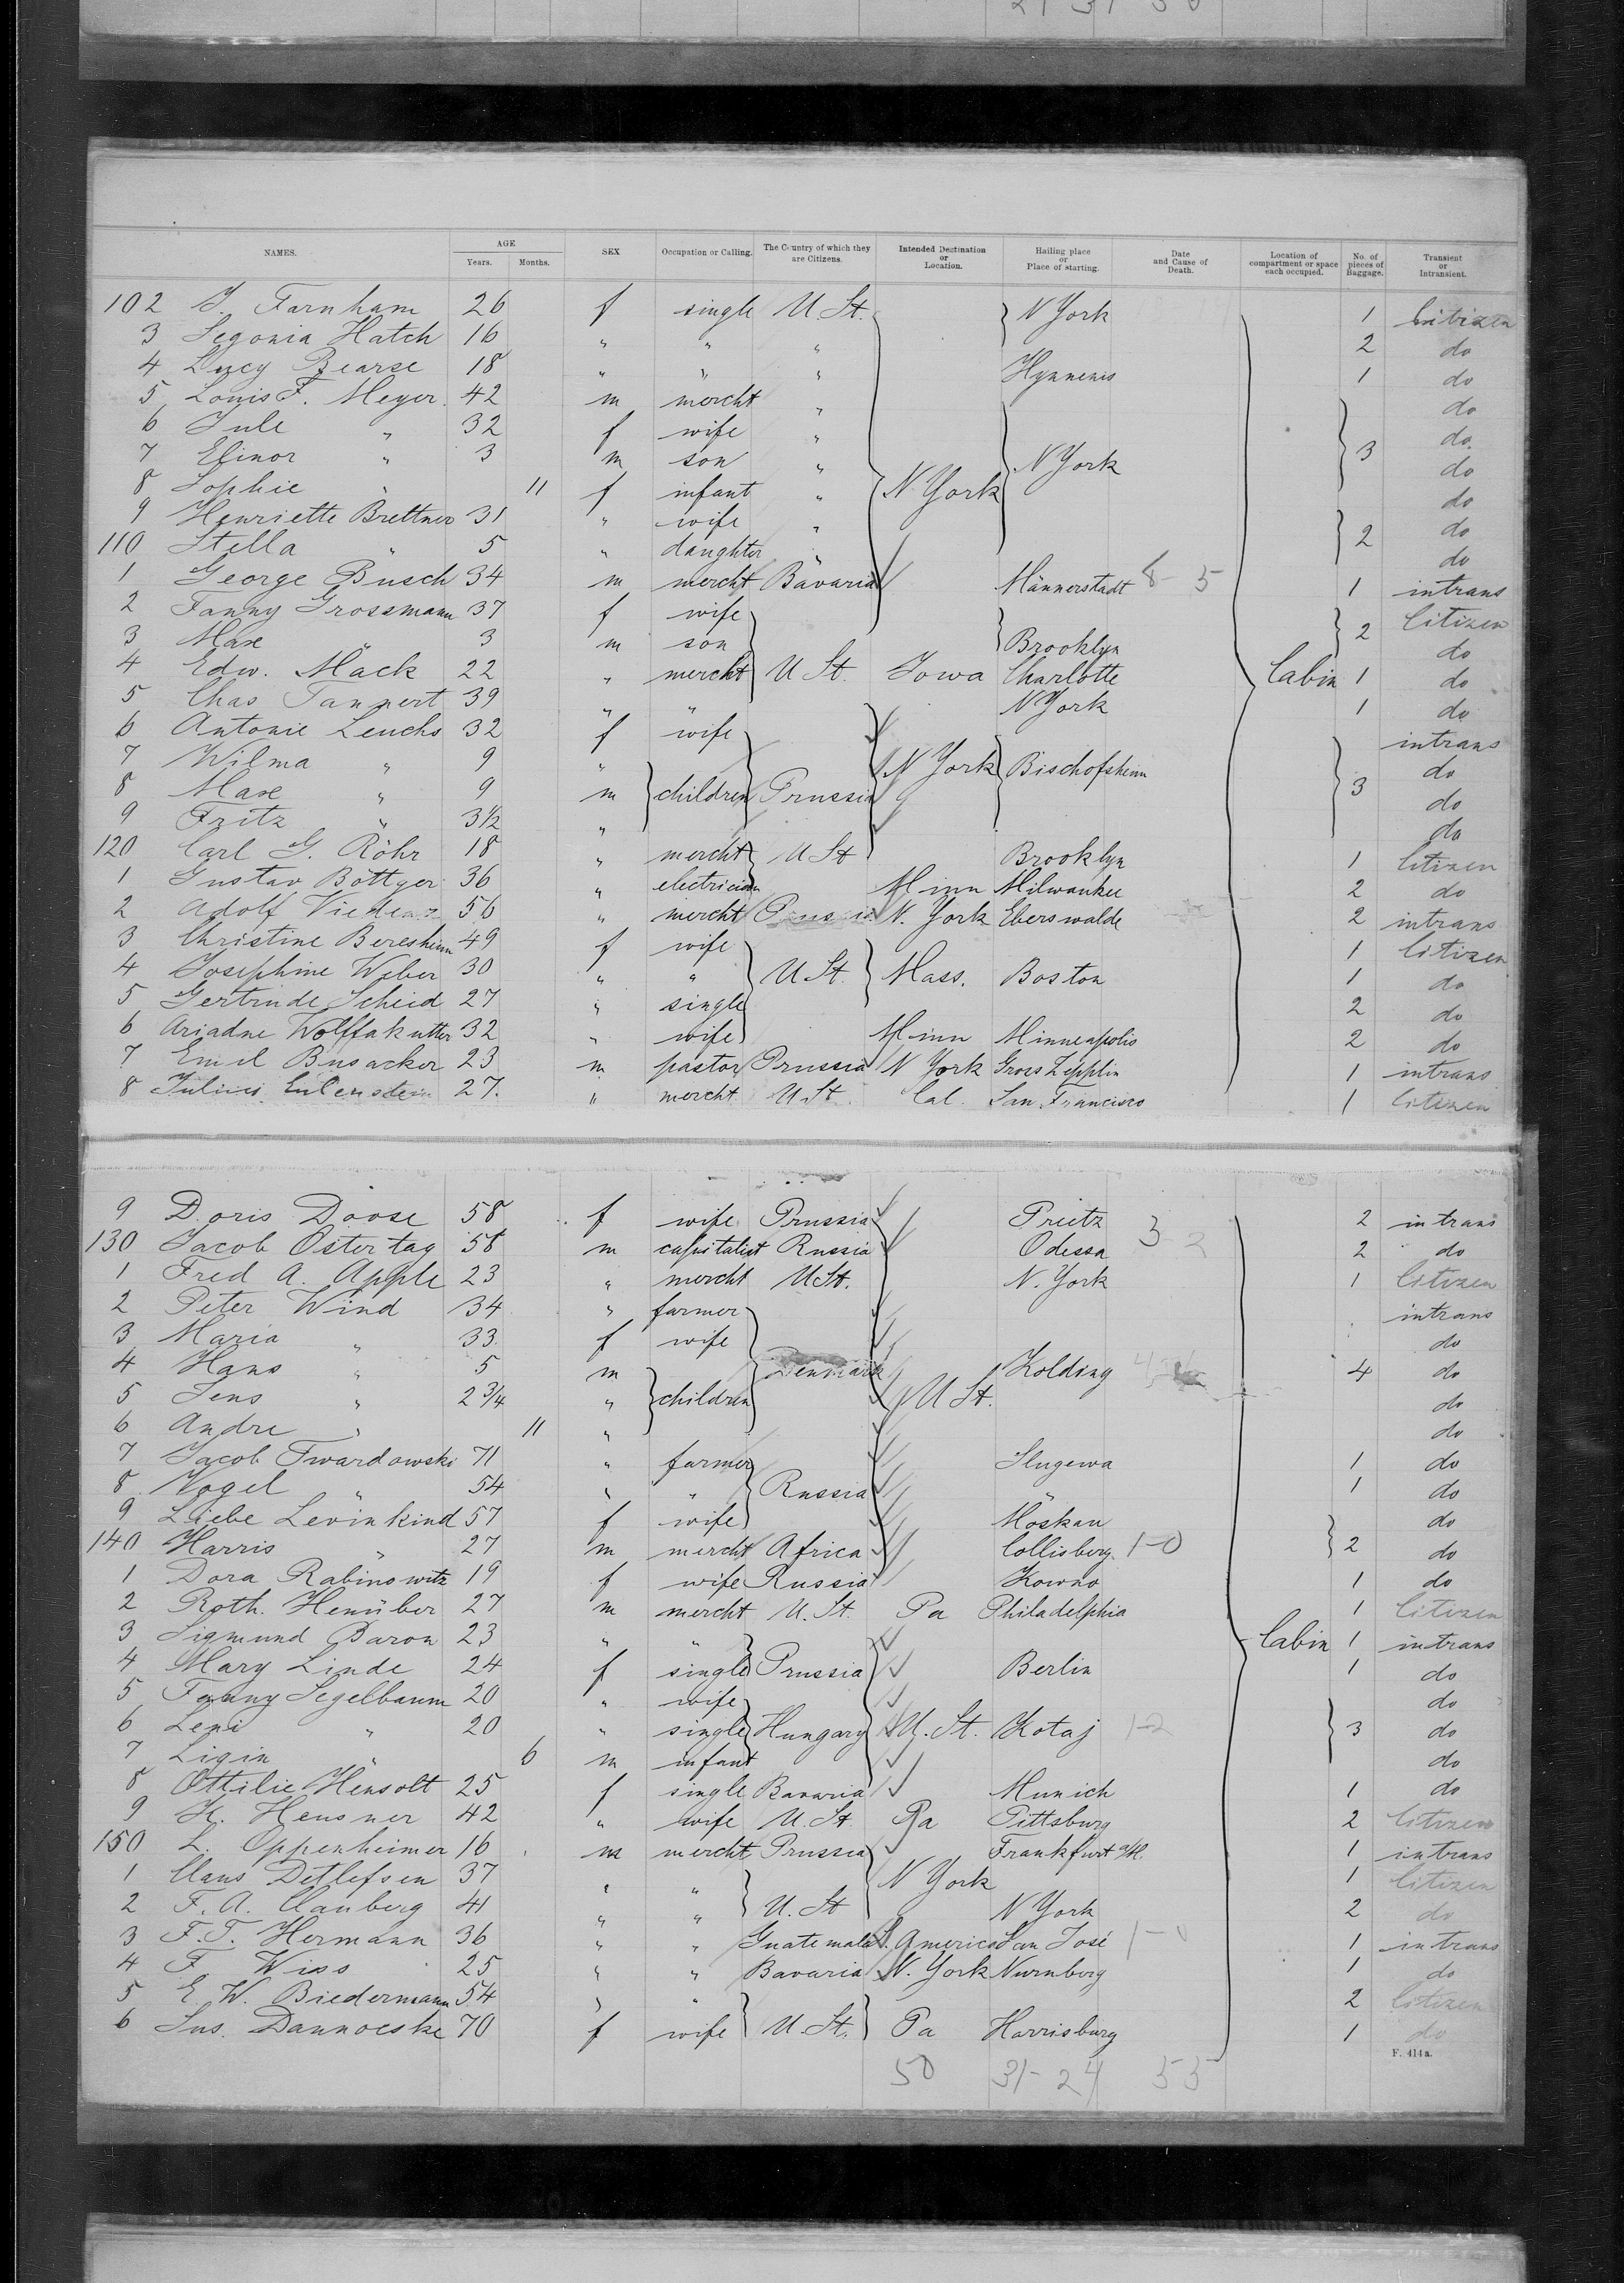 NAMES. AGE Years. Months. SEX Occupation or Calling. The Country of which they are Citizens. Intended Destination or Location. Hailing place or Place of starting. Date and Cause of Death. Location of compartment or space each occupied. No. of pieces of Baggage. Transient or Intransient.
102 Farnham 26 f single U. St. N York 1 Citizen
3 Segonia Hatch 16 " " " 2 do
4 Lucy Bearse 18 " " " Hynnenis 1 do
5 Louis F. Meyer 42 m mercht " do
6 Jule " 32 f wife " do
7 Elinor " 3 m son " N York 3 do
8 Sophie " 11 f infant " N. York do
9 Henriette Brettner 31 " wife " do
110 Stella " 5 " daughter " 2 do
1 George Busch 34 m mercht Bavaria Männerstadt 8-5 1 intrans
2 Fanny Grossmann 37 f wife 2 Citizen
3 Max " 3 m son Brooklyn do
4 Edw. Mack 22 " mercht U St. Iowa Charlotte Cabin 1 do
5 Chas Tannert 39 " " N York 1 do
6 Antonie Leuchs 32 f wife intrans
7 Wilma " 9 " N York Bischofsheim do
8 Max " 9 m children Prussia 3 do
9 Fritz " 3½ " do
120 Carl G. Röhr 18 " mercht U St Brooklyn 1 Citizen
1 Gustav Böttger 36 " electrician Minn Milwaukee 2 do
2 Adolf 56 " mercht N. York Eberswalde 2 intrans
3 Christine Beresheim 49 f wife 1 Citizen
4 Josephine Weber 30 " " U St. Mass. Boston 1 do
5 Gertrude Scheid 27 " single 2 do
6 Ariadne Wolffakutter 32 " wife Minn Minneapolis 2 do
7 Emil Busacker 23 m pastor Prussia N York Gross 1 intrans
8 Julius Eulenstein 27. " mercht U. St. Cal. San Francisco 1 Citizen
9 Doris Doose 58 f wife Prussia Preetz 2 intrans
130 Jacob Ostertag 58 m capitalist Russia Odessa 3-2 2 do
1 Fred A. Apple 23 " mercht U St. N. York 1 Citizen
2 Peter Wind 34 " farmer intrans
3 Maria " 33 f wife do
4 Hans " 5 m Denmark Kolding 4 do
5 Jens " 2¾ " children U St. do
6 Andre " 11 " do
7 Jacob Twardowski 71 " farmer Slugewa 1 do
8 Vogel " 54 " " Russia " 1 do
9 Liebe Levinkind 57 f wife Moskau do
140 Harris " 27 m mercht Africa Collisberg. 1-0 2 do
1 Dora Rabinowitz 19 f wife Russia Kowno 1 do
2 Roth. Henüber 27 m mercht U. St. Pa Philadelphia 1 Citizen
3 Sigmund Baron 23 " " Cabin 1 intrans
4 Mary Linde 24 f single Prussia Berlin 1 do
5 Fanny Segelbaum 20 " wife do
6 Leni " 20 " single Hungary U. St. Kotaj 1-2 3 do
7 Ligin " 6 m infant do
8 Ottilie Hensolt 25 f single Bavaria Munich 1 do
9 H. Heusner 42 " wife U. St. Pa Pittsburg 2 Citizen
150 L. Oppenheimer 16 m mercht Prussia Frankfurt a/M. 1 intrans
1 Claus Detlefsen 37 " " N York 1 Citizen
2 F. A. Clauberg 41 " " U. St N York 2 do
3 F. T. Hermann 36 " " Guatemala S. America San José 1-0 1 intrans
4 F Wiss 25 " " Bavaria N. York Nurnberg 1 do
5 E. W. Biedermann 54 " " 2 Citizen
6 Sus. Dannoeske 70 f wife U. St. Pa Harrisburg 1 do
F. 414a.
50 31-24 55